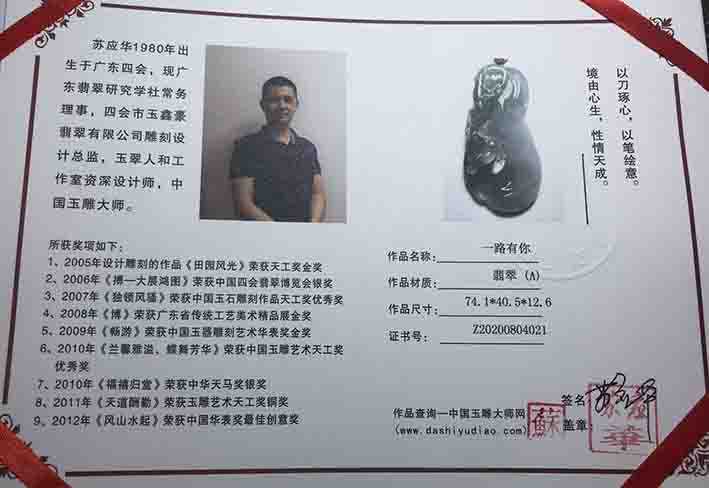 苏应华1980年出
生于广东四会，现广
东翡翠研究学社常务
理事，四会市玉鑫豪
翡翠有限公司雕刻设
计总监，玉翠人和工
作室资深设计师，中
国玉雕大师。
以刀琢心，以笔绘意。
境由心生，性情天成。
所获奖项如下：
1、2005年设计雕刻的作品《田园风光》荣获天工奖金奖
2、2006年《搏一大展鸿图》荣获中国四会翡翠博览会银奖
3、2007年《独领风骚》荣获中国玉石雕刻作品天工奖优秀奖
4、2008年《博》荣获广东省传统工艺美术精品展金奖
5、2009年《畅游》荣获中国玉器雕刻艺术华表奖金奖
6、2010年《兰馨雅溢、蝶舞芳华》荣获中国玉雕艺术天工奖
优秀奖
7、2010年《福禧归堂》荣获中华天马奖银奖
8、2011年《天道酬勤》荣获玉雕艺术天工奖铜奖
9、2012年《风山水起》荣获中国华表奖最佳创意奖
作品名称： 一路有你
作品材质： 翡翠 (A)
作品尺寸： 74.1*40.5*12.6
证书号： Z20200804021
作品查询一中国玉雕大师网
(www.dashiyudiao.com)
蘇
签名
盖章：